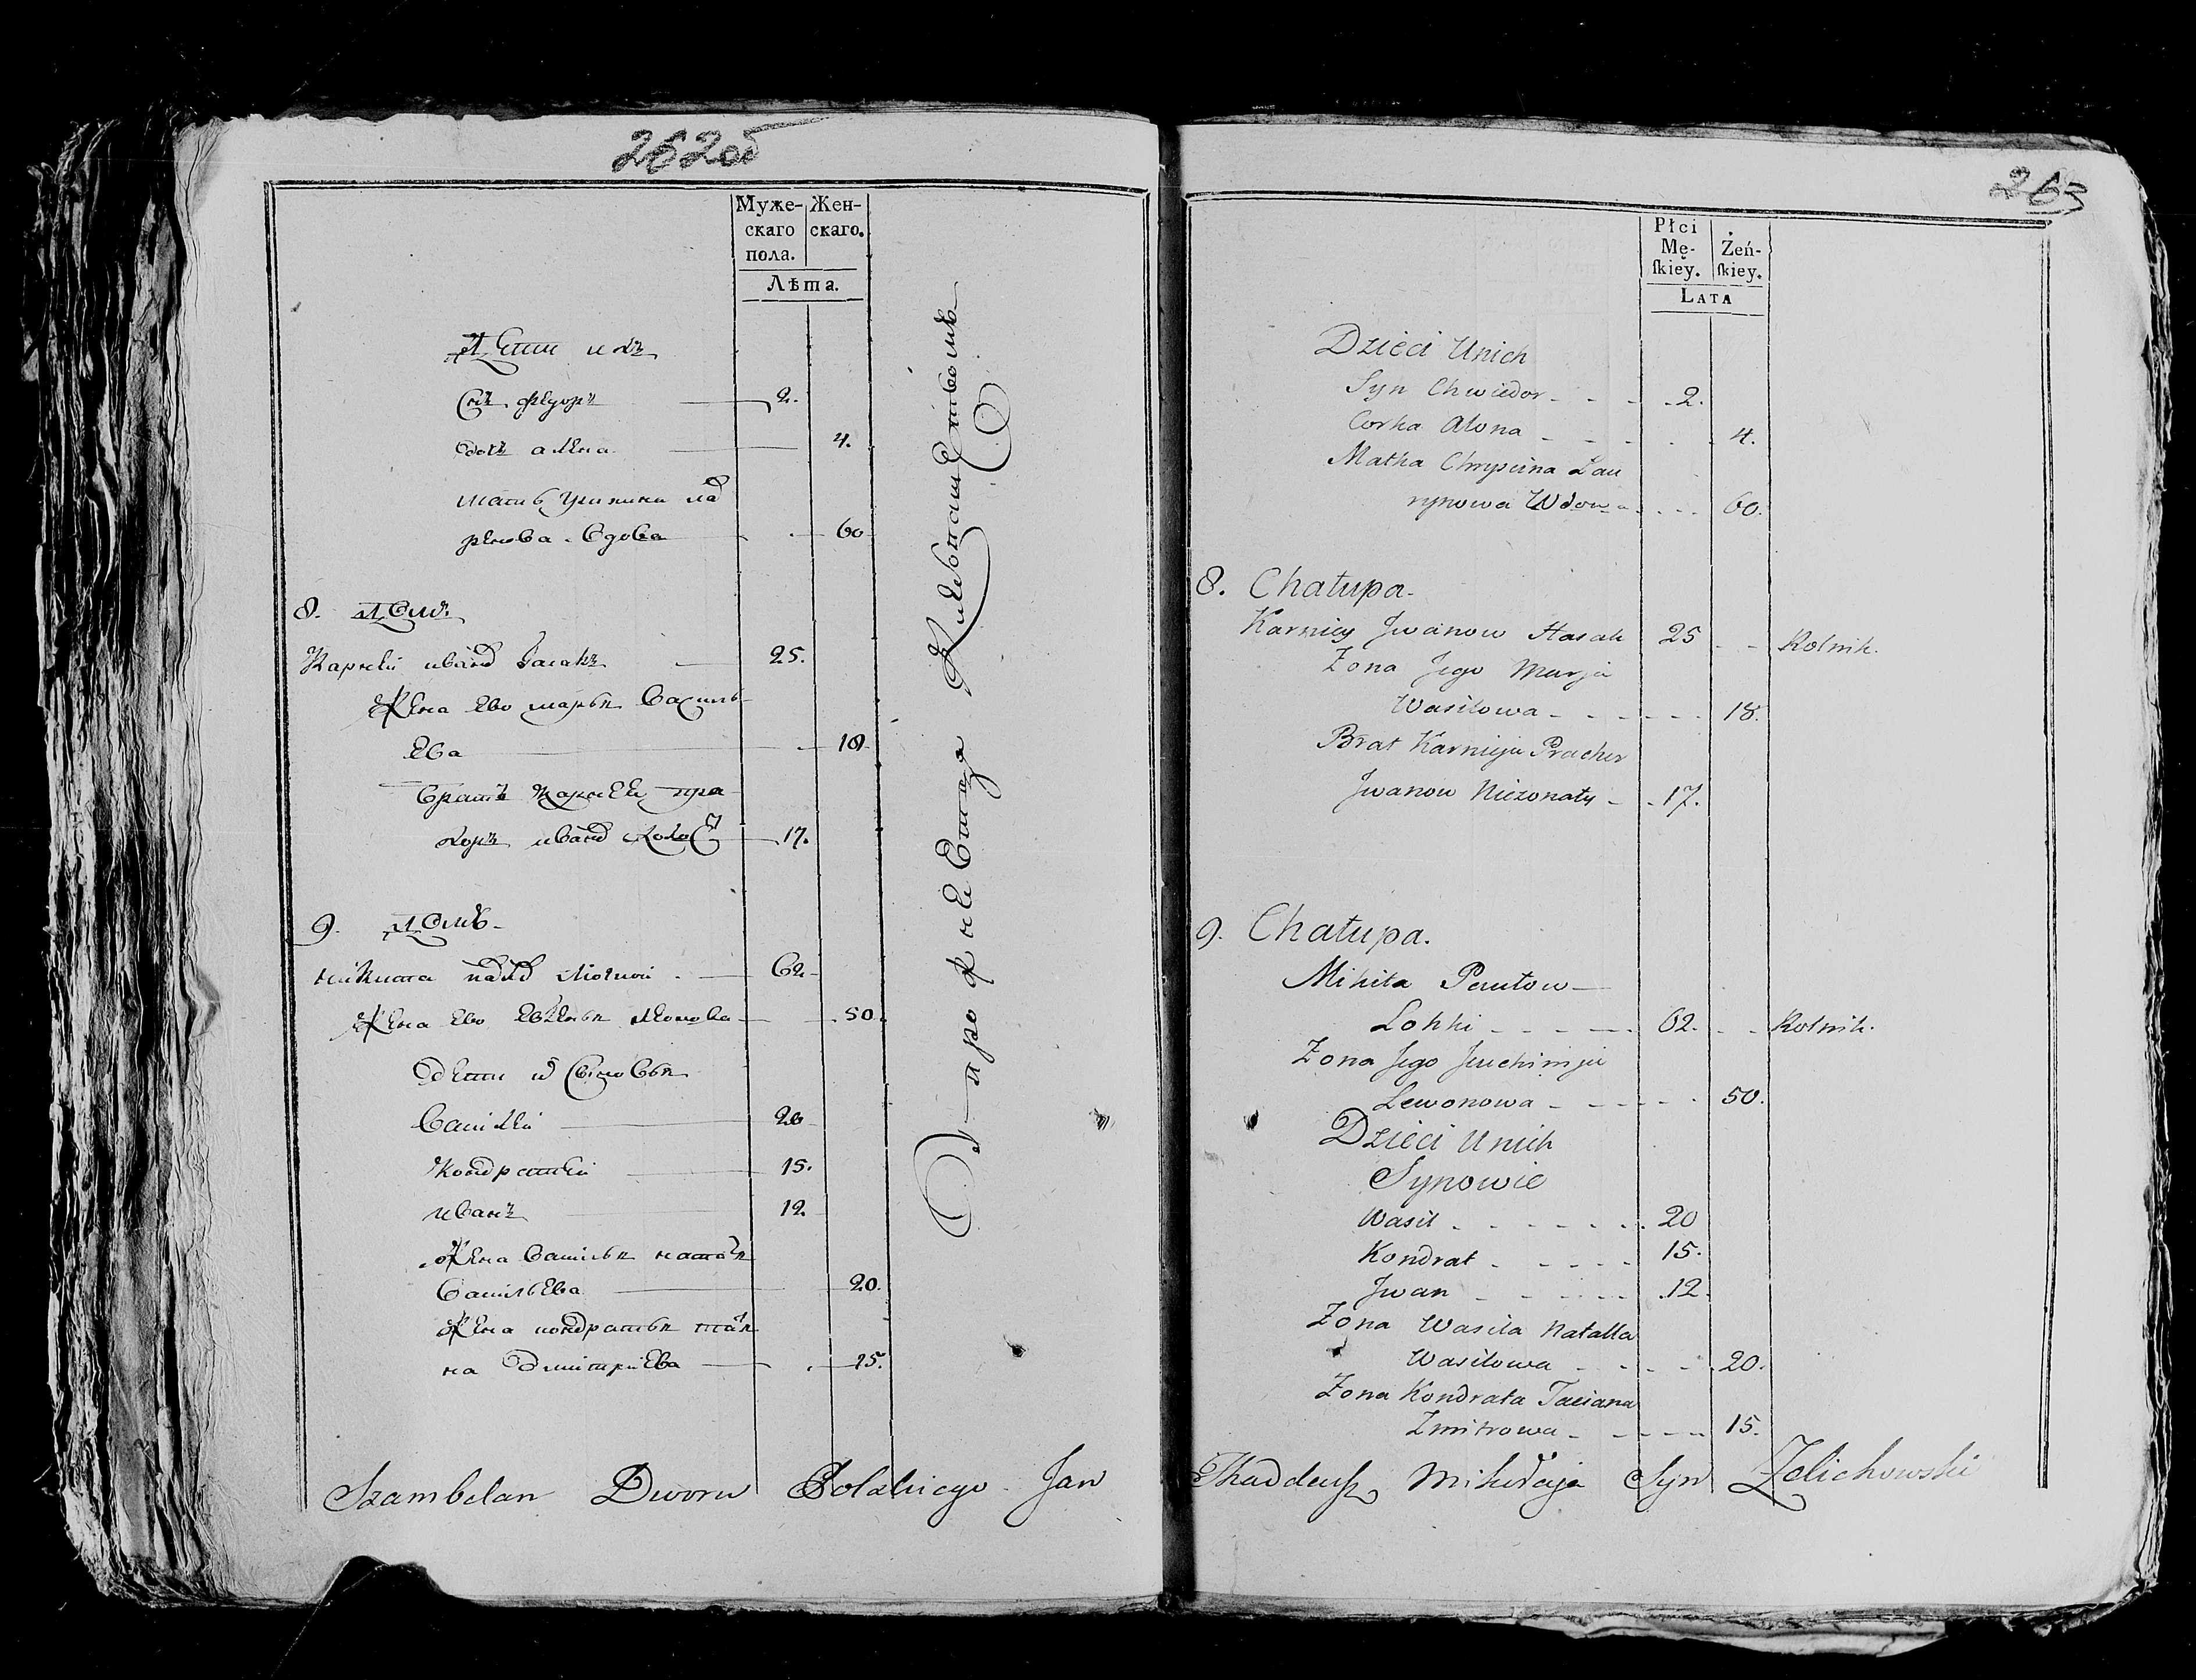 262об
Муже-
скаго
пола.
Жен-
скаго.
Лѣта.
Дети ихъ
Снъ Федоръ 2.
дочь алена 4.
мать
вдова 60
8. Домъ
Карней иванов Гасакъ 25.
Жена Ево марья василь
ева 18
братъ Карнея пра
хоръ иванов холост 17.
9. Домъ
никита павлов 62
Жена Ево 50
дети и сыновья
василей 20
кондратей 15.
иванъ 12.
Жена василья наталья
васильева 20.
Жена кондратья татья
на дмитриева 15.
263
Płci
Mę-
skiey.
Żeń-
skiey.
Lata
Dzieci Unich
Syn Chwiedor 2.
Corka Alona 4.
Matka Chrypina Lau
rynowa Wdowa 60.
8. Chałupa.
Karniey Jwanow Hasak 25 Rolnik.
Zona Jego Marja
Wasilowa 18.
Brat Karnieja Prachor
Jwanow Nieżonaty 17.
9. Chałupa.
Mikita Pawłow
62. Rolnik.
Zona Jego Jeuchimija
Lewonowa 50.
Dzieci Unich
Synowie
Wasil 20
Kondrat 15.
Jwan 12.
Zona Wasila Natalla
Wasilowa 20.
Zona Kondrata Taciana
Zmitrowa 15.
Szambelan Dworu Polskiego Jan Thaddeusz Mikołaja Syn Zelichowski